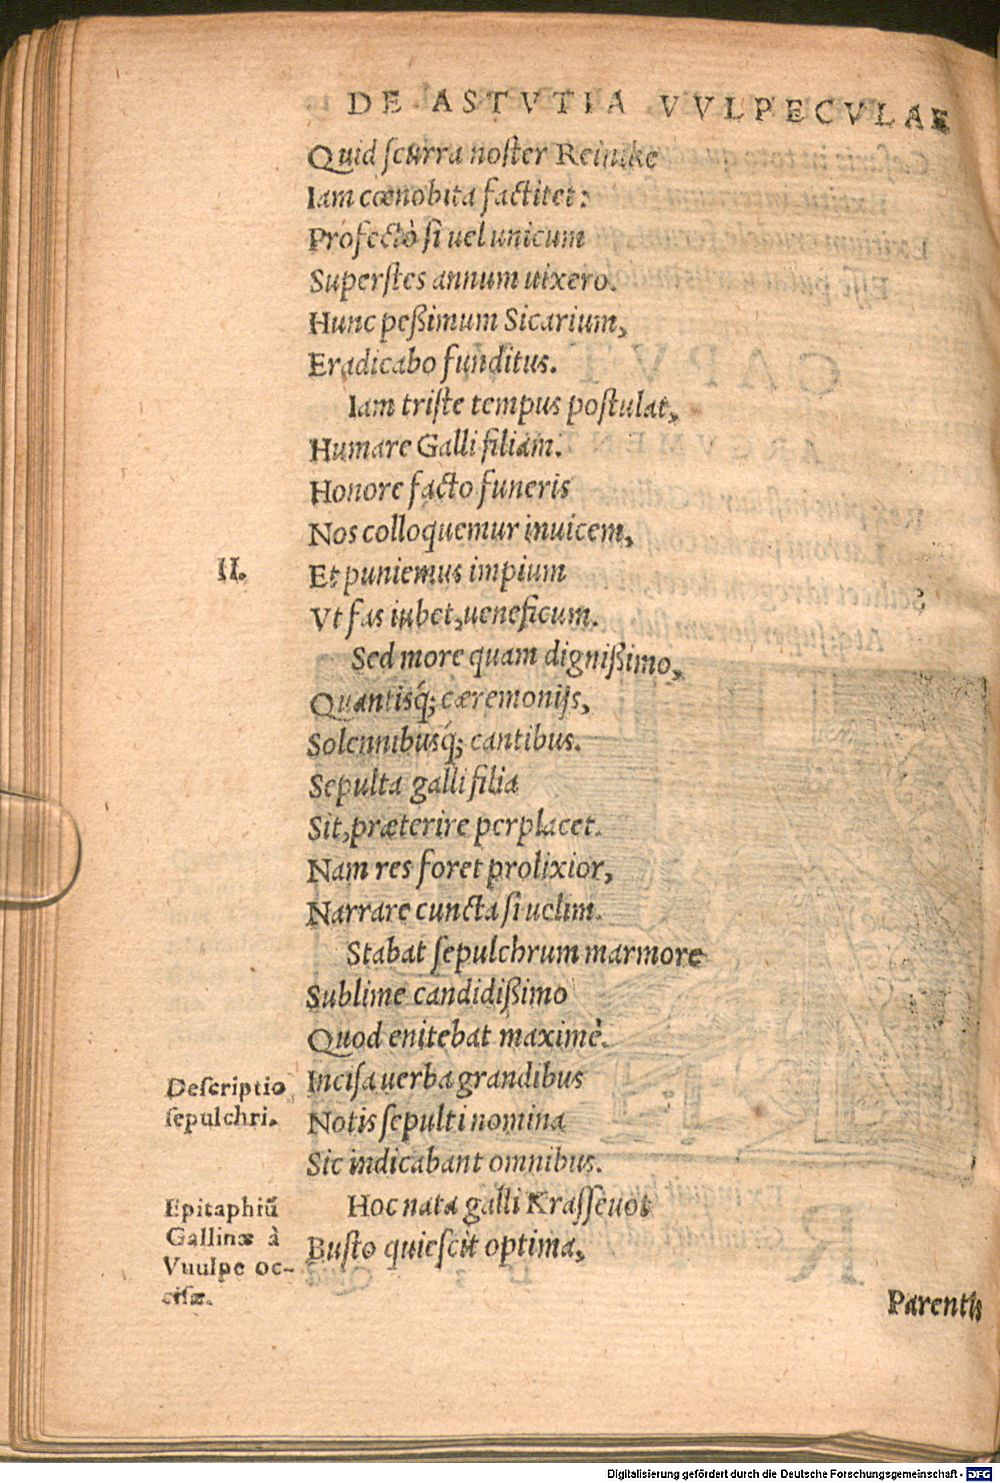 DE ASTVTIA VVLPECVLAE
Quid ſcurra noſter Reinike
Iam cœnobita factitet:
Profectò ſi uel unicum
Superſtes annum uixero.
Hunc peßimum Sicarium,
Eradicabo funditus.
Iam triſte tempus poſtulat,
Humare Galli filiam.
Honore facto funeris
Nos colloquemur inuicem,
II.
Et puniemus impium
Vt fas iubet, ueneficum.
Sed more quam digniſſimo,
Quantisq́; cæremonijs,
Solennibusq́; cantibus.
Sepulta galli filia
Sit, præterire perplacet.
Nam res foret prolixior,
Narrare cuncta ſi uelim.
Stabat ſepulchrum marmore
Sublime candidißimo
Quod enitebat maximè.
Descriptio
ſepulchri.
Inciſa uerba grandibus
Notis ſepulti nomina
Sic indicabant omnibus.
Epitaphiū
Gallinæ à
Vuulpe oc-
ciſæ.
Hoc nata galli Kraſſeuot
Buſto quieſcit optima,
Parentis
Digitalisierung gefördert durch die Deutsche Forschungsgemeinschaft - DFG